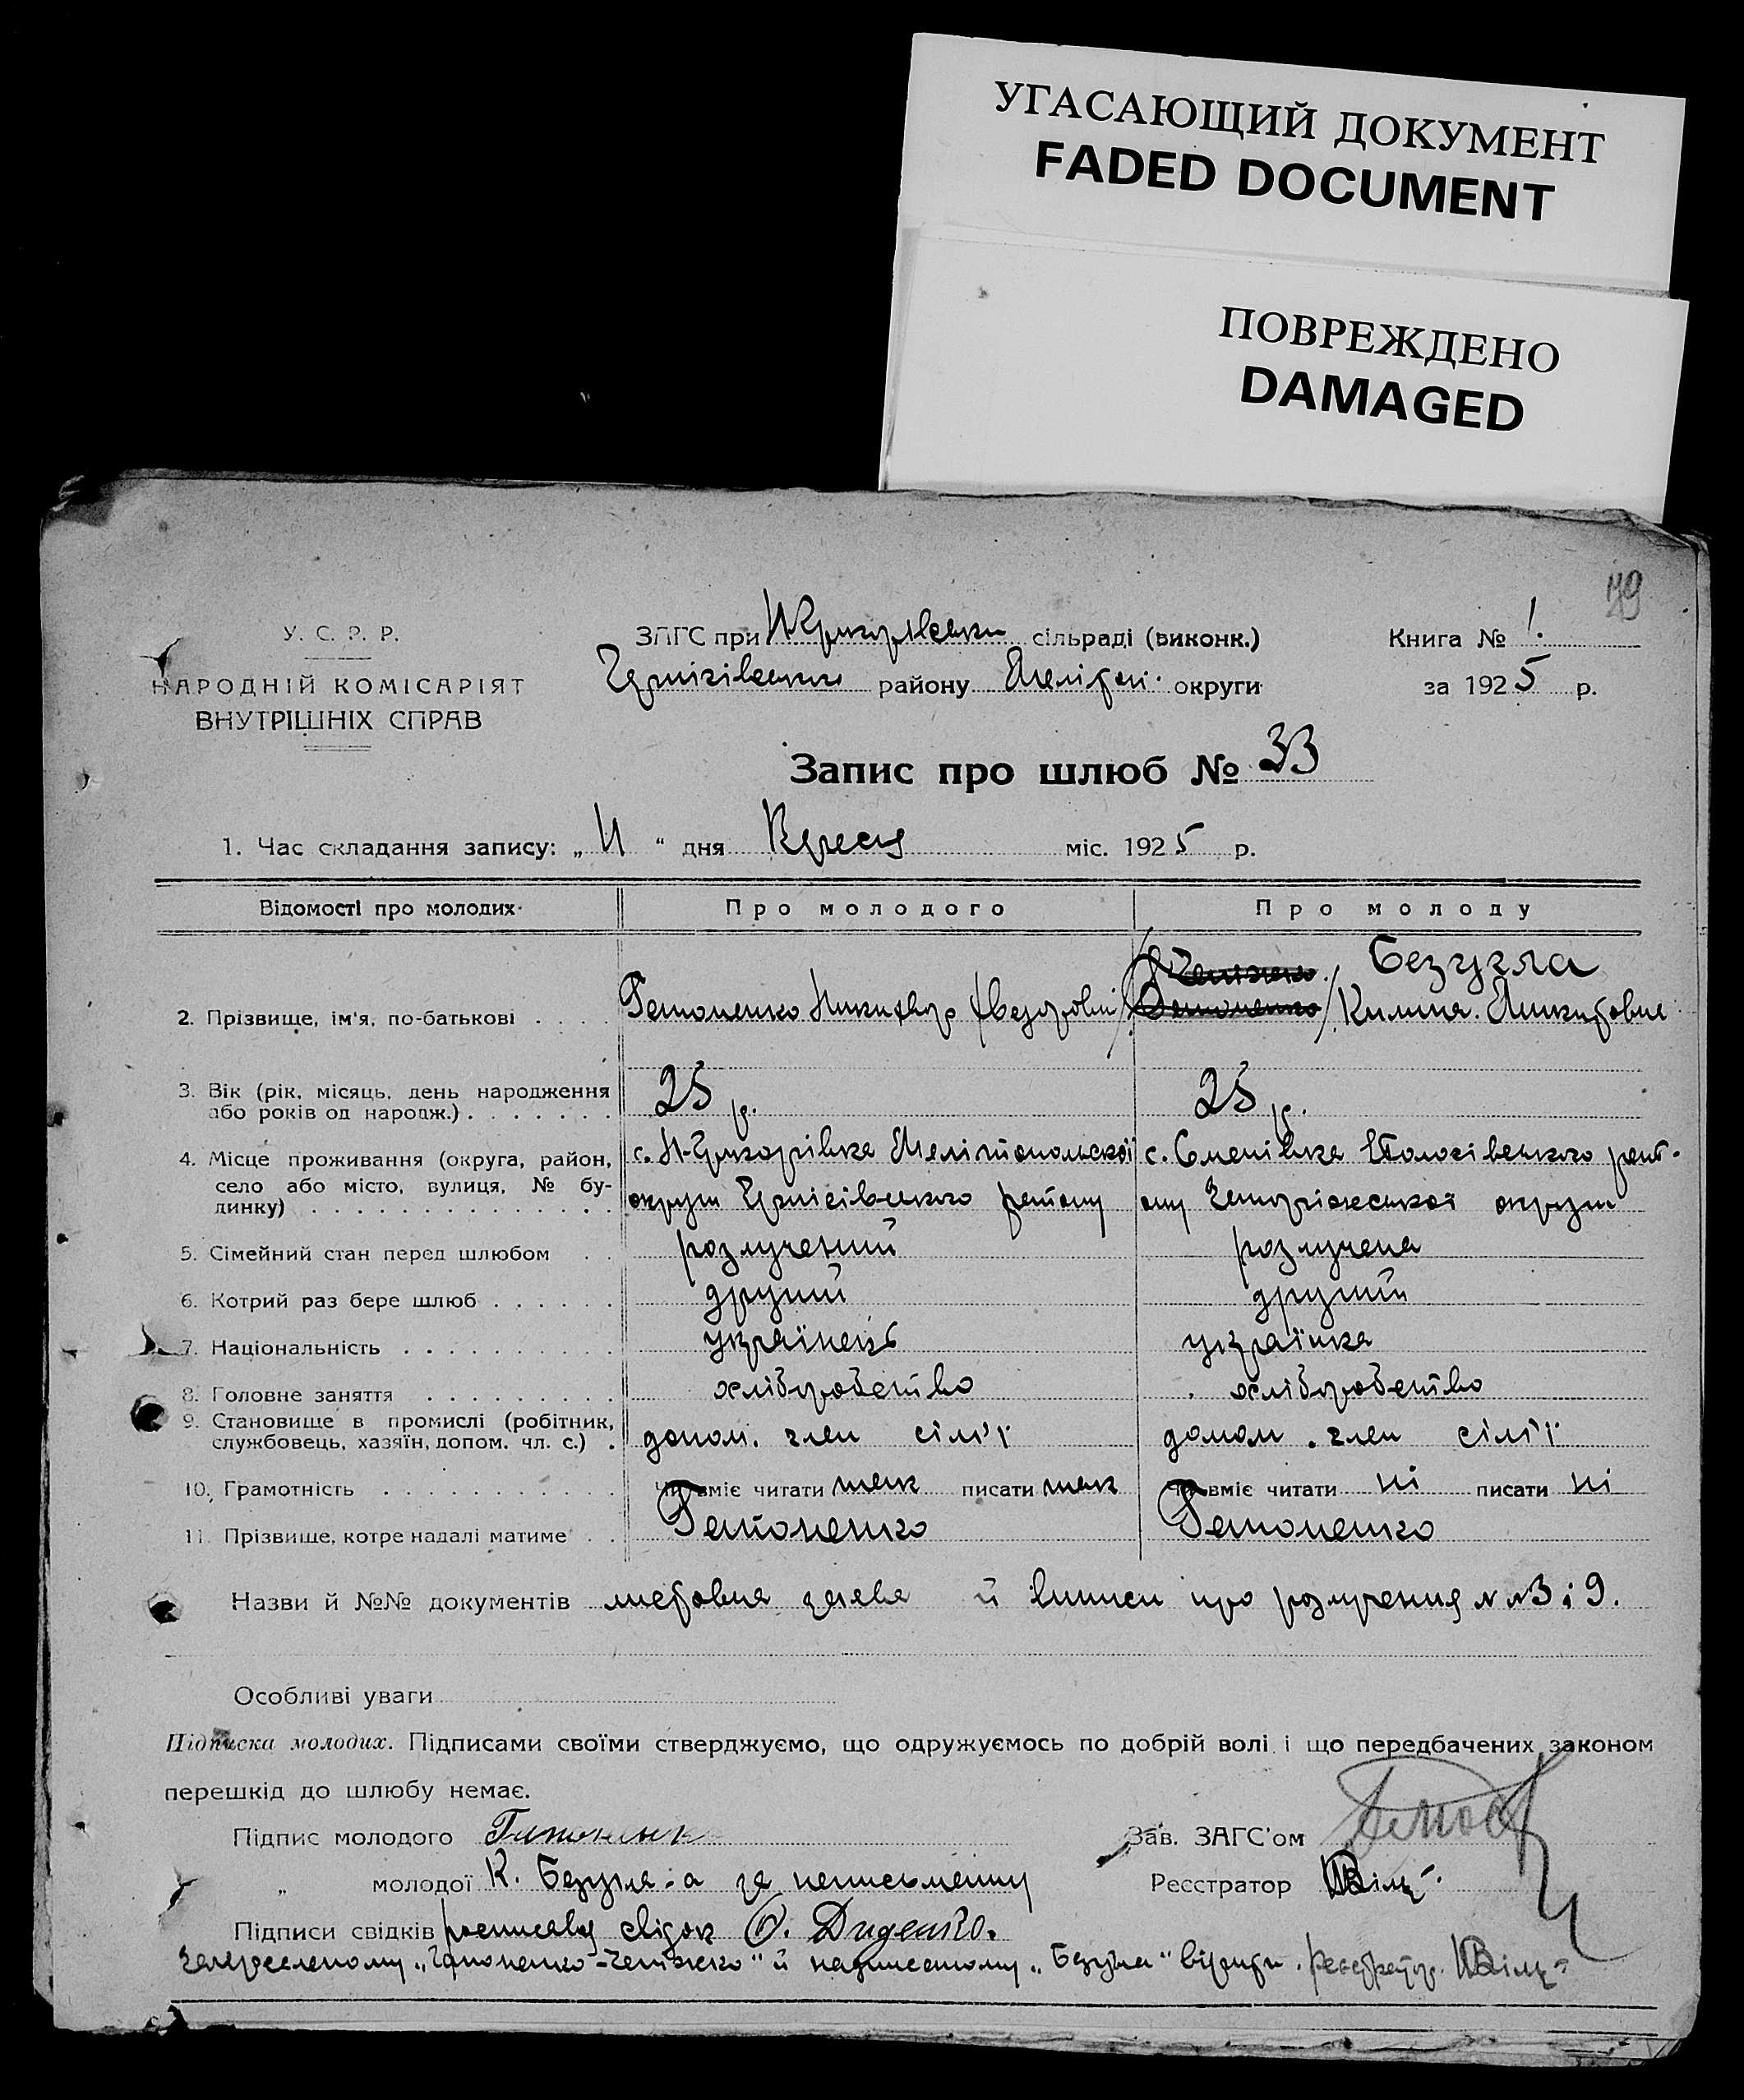 УГАСАЮЩИЙ ДОКУМЕНТ
FADED DOCUMENT
ПОВРЕЖДЕНО
DAMAGED
79
У. С. Р. Р.
НАРОДНІЙ КОМІСАРІЯТ
ВНУТРІШНІХ СПРАВ
ЗАГС при сільраді (виконк.)
Чернігівського району Мелітоп. округи
Книга № 1.
за 1925 р.
Запис про шлюб № 33
1. Час складання запису: „11“ дня Вересня міс. 1925 р.
Відомості про молодих Про молодого Про молоду
Безугла
2. Прізвище, ім'я, по-батькові . . . . Гапоненко Никифор Федорович Килина Микитовна
3. Вік (рік, місяць, день народження або років од народж.) . . . . . . . 25 р. 25 р.
4. Місце проживання (округа, район, с. Н-Григорівка Мелітопольської с. Семенівка Пологівського рай-
село або місто, вулиця, № бу- округи Чернігівського району ону Запоріжської округи
динку) . . . . . . . . . . . . . .
5. Сімейний стан перед шлюбом . . розлучений розлучена
6. Котрий раз бере шлюб . . . . . . другий другий
7. Національність . . . . . . . . . . українець українка
8. Головне заняття . . . . . . . . . хліборобство хліборобство
9. Становище в промислі (робітник,
службовець, хазяїн, допом. чл. с.) . допом. член сім'ї допом. член сім'ї
10. Грамотність . . . . . . . . . . . Чи вміє читати так писати так Чи вміє читати ні писати ні
11. Прізвище, котре надалі матиме . . Гапоненко Гапоненко
Назви й №№ документів заява й виписи про розлучення №№ 3 і 9.
Особливі уваги
Підписка молодих. Підписами своїми стверджуємо, що одружуємось по добрій волі і що передбачених законом
перешкід до шлюбу немає.
Підпис молодого Гапоненко Зав. ЗАГС'ом
„ молодої К. Безугла а за неписьменну Реєстратор
Підписи свідків росписався свідок О. Диденко.
Закресленому „Гапоненко- “ й надписаному „Безугла“ вірити. реєстратор